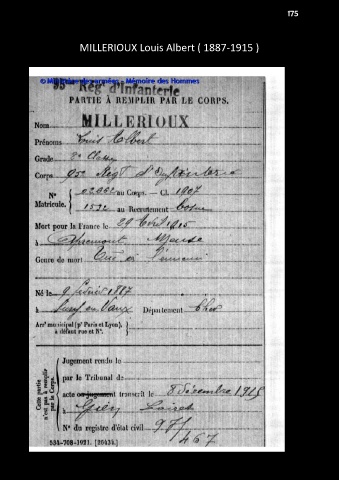 175
MILLERIOUX Louis Albert ( 1887-1915 )
Mémoire des Hommes
95e Rég d'Infanterie
PARTIE À REMPLIR PAR LE CORPS.
Nom MILLERIOUX
Prénoms Louis Albert
Grade 2e Classe
Corps 95e Régt d'Infanterie
N° Matricule. { 02882 au Corps. — Cl. 1907
1592 au Recrutement Cosne
Mort pour la France le 29 Avril 1915
à Apremont Meuse
Genre de mort Tué à l'ennemi
Né le 9 février 1887
à Sury en Vaux Département Cher
Arrt municipal (pr Paris et Lyon),
à défaut rue et N°.
Cette partie n'est pas à remplir par le Corps.
Jugement rendu le
par le Tribunal de
acte ou jugement transcrit le 8 décembre 1915
à Gien Loiret
N° du registre d'état civil 971/467
534-708-1921. [26434.]